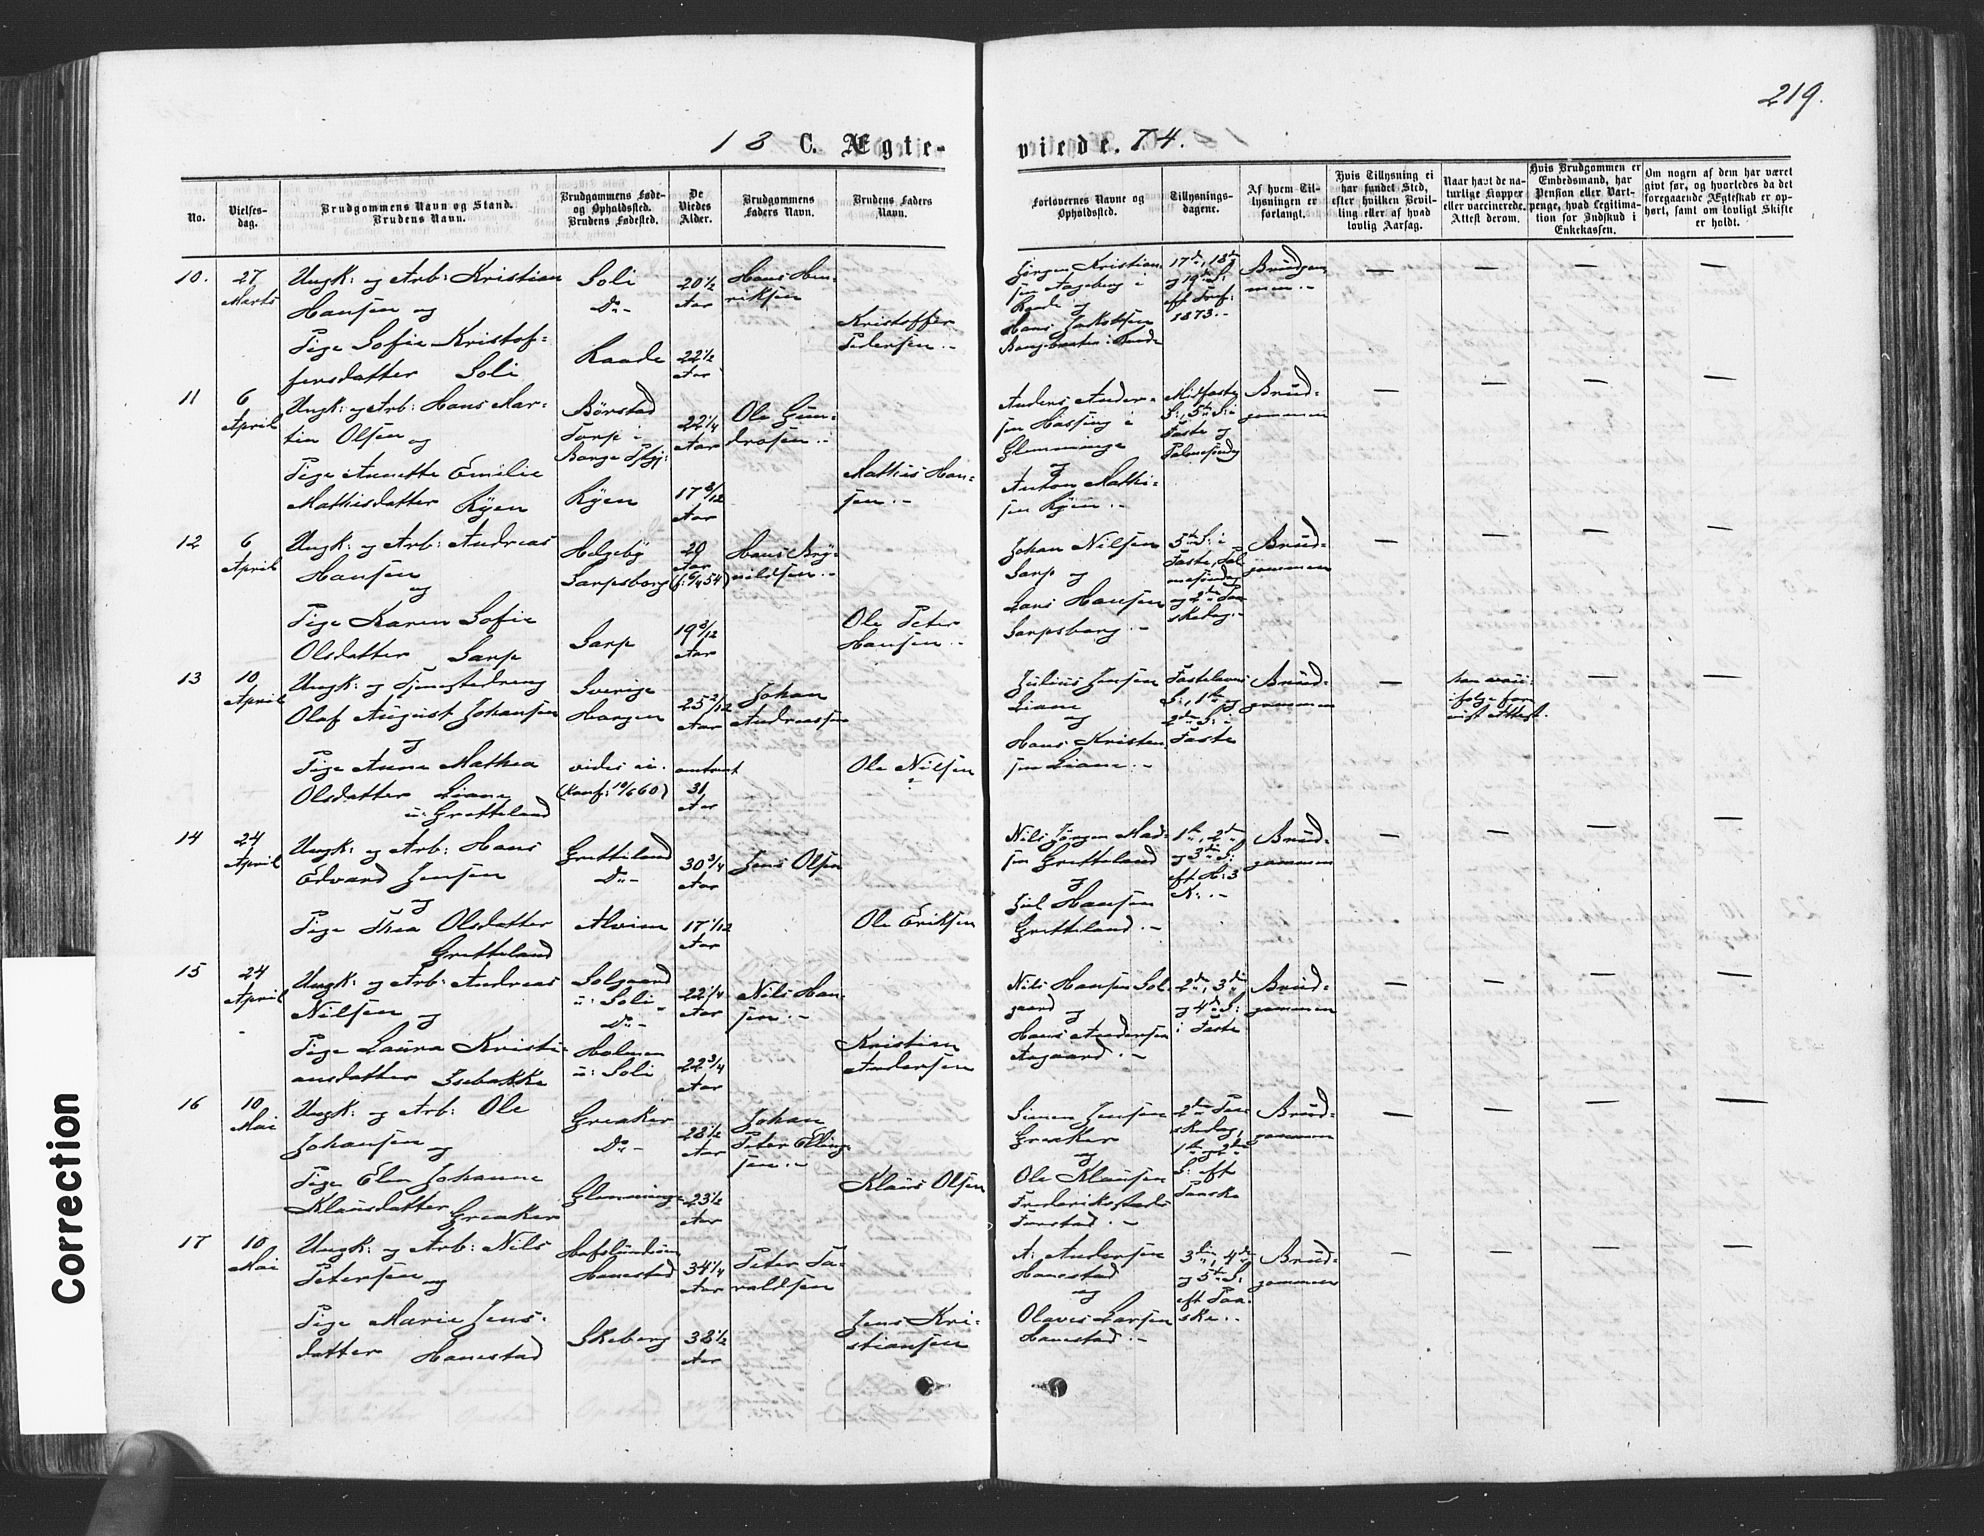 219.
18 C. Ægte-
viede. 74.
No.
Vielses-
dag.
Brudgommens Navn og Stand.
Brudens Navn.
Brudgommens Føde-
og Opholdssted.
Brudens Fødested.
De
Viedes
Alder.
Brudgommens
Faders Navn.
Brudens Faders
Navn.
Forlovernes Navne og
Opholdssted.
Tillysnings-
dagene.
Af hvem Til-
lysningen er
forlangt.
Hvis Tillysning ei
har fundet Sted,
efter hvilken Bevil-
ling eller af hvad
lovlig Aarsag.
Naar havt de na-
turlige Kopper
eller vaccinerede.
Attest derom.
Hvis Brudgommen er
Embedsmand, har
Pension eller Vart-
penge, hvad Legitima-
tion for Indskud i
Enkekassen.
Om nogen af dem har været
givt før, og hvorledes da det
foregaaende Ægteskab er op-
hørt, samt om lovligt Skifte
er holdt.
10.
27
Marts
Ungk: og Arb: Kristian
Hansen og
Pige Sofie Kristof-
fersdatter Soli
Soli
Do -
Raade
20 1/2
Aar
22 1/2
Aar
Hans Hen-
riksen
Kristoffer
Pedersen.-
Jørgen Kristian
sen Aageberg i
Raade og
Hans Jakobsen
17de, 18de
og 19de S:
eft Tref:
1873.-
Brudgom
men.-
— — — —
11
6
April
Ungk: og Arb: Hans Mar-
tin Olsen og
Pige Annette Emilie
Mathisdatter Ryen
Børstad
Torp i
Borge Pstgj:
Ryen
22 1/4
Aar
17 3/12
Aar
Ole Gun-
drosen.-
Mathis Han-
sen.-
Anders Ander-
sen Hassing i
Glemminge
og
Anton Mathi-
sen Ryen.-
Midfaste
S:, 5te S: i
Faste og
Palmesøndag
Brud-
gommen
— — — —
12
6
April
Ungk: og Arb: Andreas
Hansen
og
Pige Karen Sofie
Olsdatter Sarp
Helgeby
Sarpsborg
Sarp
20
Aar
(f: 6/4 54)
19 3/12
Aar
Hans Bry-
nildsen.-
Ole Peter
Hansen.-
Johan Nilsen
Sarp og
Lars Hansen
Sarpsborg.-
5te S: i
Faste, Pal
mesøndag
og 2den Paa
skedag.-
Brud-
gommen
— — — —
13
10
April
Ungk: og Tjenestedreng
Olaf August Johansen
og
Pige Anne Mathea
Olsdatter Liane
u: Gretteland
Sverige
Haugen
vides ei.
(Konf: 10/6 60)
25 2/12
Aar
omtrent
31
Aar
Johan
Andreassen
Ole Nilsen
Julius Jensen
Liane
og
Hans Kristen
sen Liane.-
Fastelavns
S:, 1ste og
2den S: i
Faste
Brud-
gommen
—
ifølge frem
vist Attest.
— —
14
24
April
Ungk: og Arb: Hans
Edvard Jensen
og
Pige Thea Olsdatter
Gretteland
Gretteland
Do -
Alvim
30 3/4
Aar
17 1/12
Aar
Jens Olsen
Ole Eriksen
Nils Jørgen Mad-
sen Gretteland
og
Juel Hansen
Gretteland.-
1ste, 2den
og 3die S:
eft H: 3
K:.-
Brud-
gommen
— — — —
15
24
April
Ungk: og Arb: Andreas
Nilsen og
Pige Laura Kristi-
ansdatter Isebakke
Solgaard
u: Soli
Do -
Holmen
u: Soli
22 1/4
Aar
22 3/4
Aar
Nils Han-
sen.-
Kristian
Andersen
Nils Hansen Sol-
gaard og
Hans Andersen
Aagaard.-
2den, 3die
og 4de S:
i Faste
Brud-
gommen
— — — —
16
10
Mai
Ungk: og Arb: Ole
Johansen og
Pige Elen Johanne
Klausdatter Greaker
Greaker
Do -
Glemminge
28 1/2
Aar
23 1/2
Aar
Johan
Peter Elling-
sen.-
Klaus Olsen
Simen Jensen
Greaker
og
Ole Klausen
Frederikstads
Forstad.-
2den Paa
skedag,
1ste og 2den
S: eft
Paaske
Brud-
gommen
— — — —
17
10
Mai
Ungk: og Arb: Nils
Petersen og
Pige Marie Jens-
datter Hanestad
Hafslundsøen
Hanestad
Skeberg
34 1/4
Aar
38 1/2
Aar
Peter Ta-
raldsen
Jens Kri-
stiansen
A: Andersen
Hanestad
og
Olaves Larsen
Hanestad.-
3die, 4de
og 5te S:
eft Paa-
ske.-
Brud-
gommen
— — — —
Correction